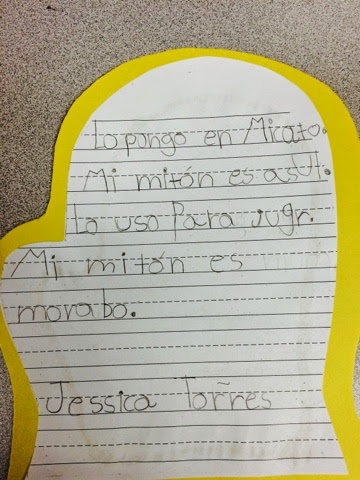 Lo pongo en Micato.
Mi mitón es asul.
Lo uso Para jugr.
Mi mitón es
morabo.
Jessica Torres